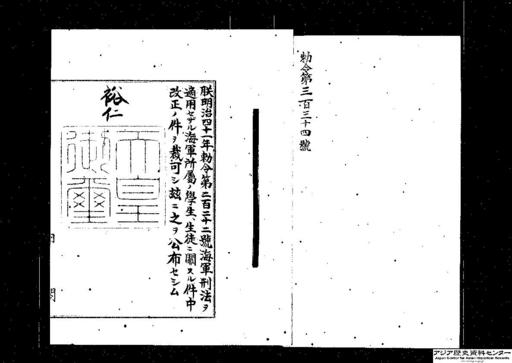 勅令第三百三十四號
朕明治四十一年勅令第二百三十二號海軍刑法ヲ
適用セラル海軍所屬ノ學生、生徒ニ關スル件中
改正ノ件ヲ裁可シ玆ニ之ヲ公布セシム
裕仁
天皇
御璽
内閣
アジア歴史資料センター
Japan Center for Asian Historical Records